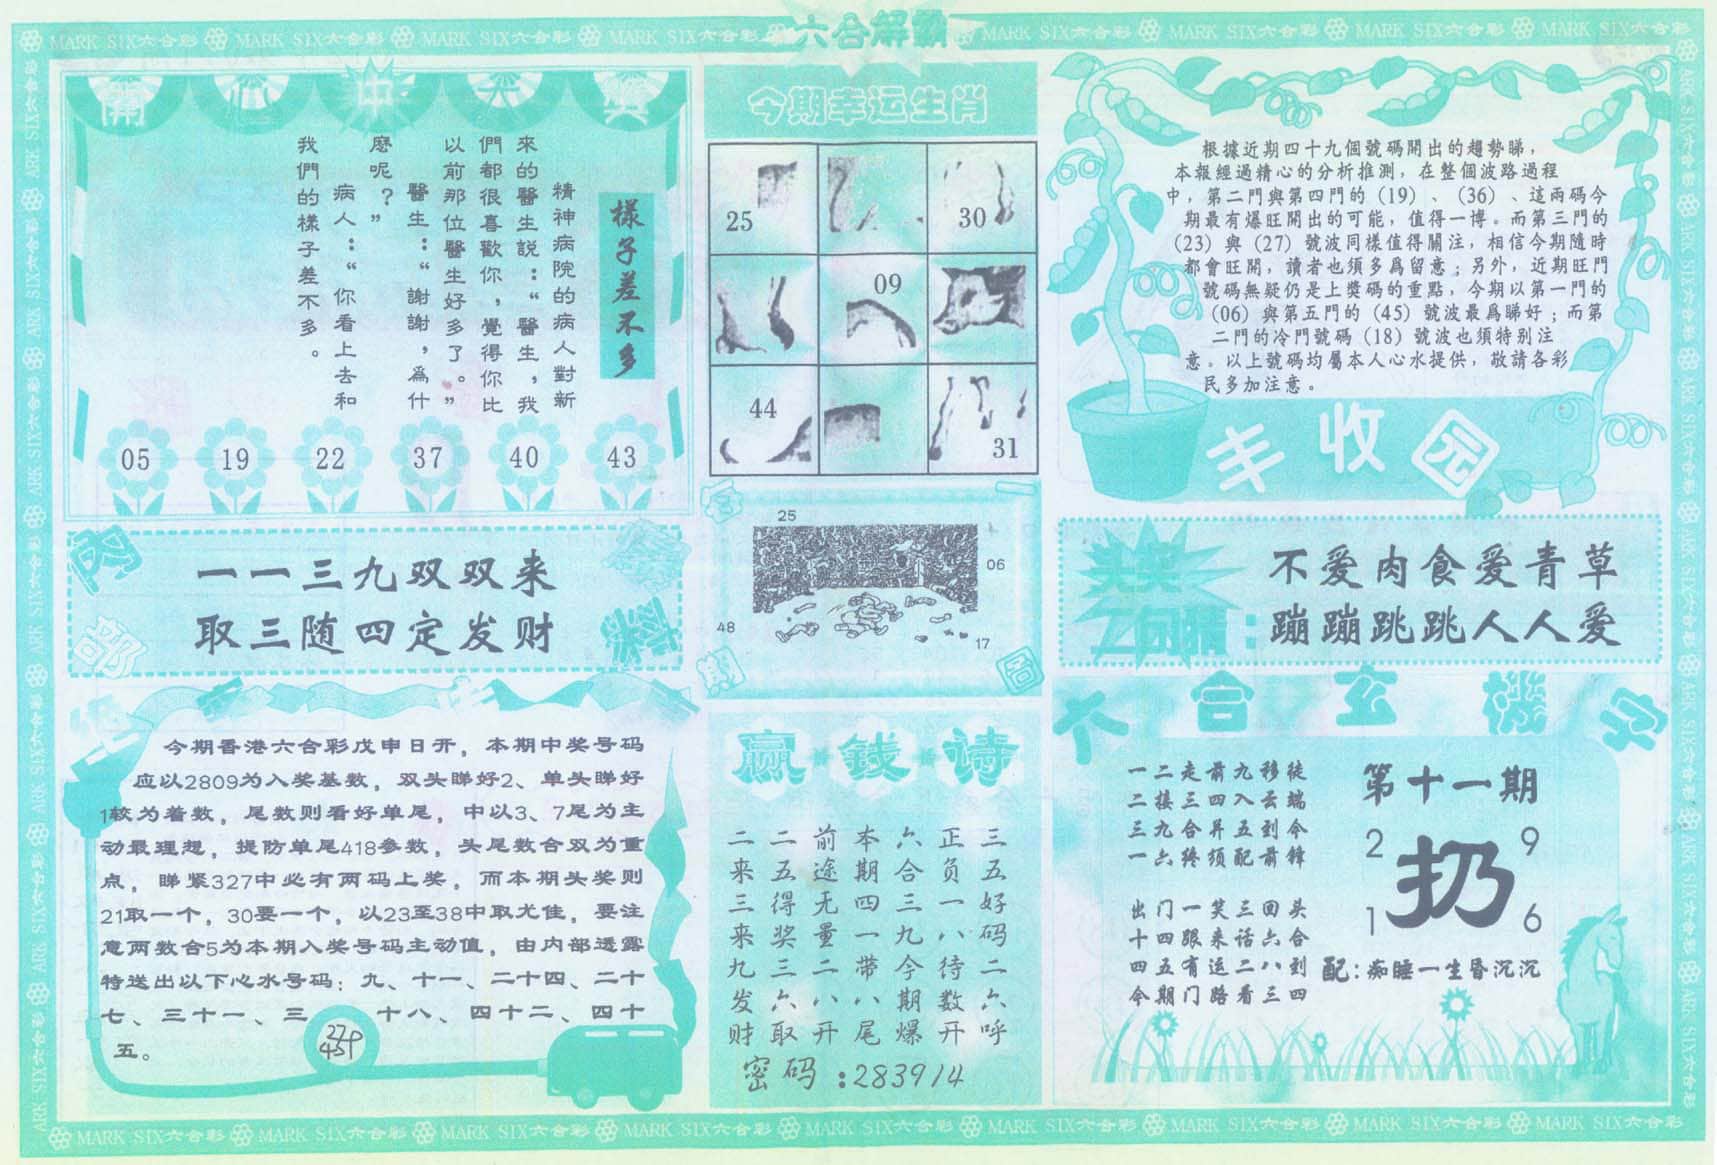 六合解霸
MARK SIX六合彩 MARK SIX六合彩 MARK SIX六合彩 MARK SIX六合彩 MARK SIX六合彩 MARK SIX六合彩 MARK SIX六合彩 MARK SIX六合彩
開心中大獎
樣子差不多
精神病院的病人對新
來的醫生説：“醫生，我
們都很喜歡你，覺得你比
以前那位醫生好多了。”
醫生：“謝謝，爲什
麽呢？”
病人：“你看上去和
我們的樣子差不多。
05 19 22 37 40 43
今期幸运生肖
25 30
09
44 31
根據近期四十九個號碼開出的趨勢睇，
本報經過精心的分析推測，在整個波路過程
中，第二門與第四門的（19）、（36）、這兩碼今
期最有爆旺開出的可能，值得一博。而第三門的
（23）與（27）號波同樣值得關注，相信今期隨時
都會旺開，讀者也須多爲留意；另外，近期旺門
號碼無疑仍是上獎碼的重點，今期以第一門的
（06）與第五門的（45）號波最爲睇好；而第
二門的冷門號碼（18）號波也須特别注
意。以上號碼均屬本人心水提供，敬請各彩
民多加注意。
丰收园
内部
一一三九双双来
取三随四定发财
25
06
48
17
头奖
二句猜：
不爱肉食爱青草
蹦蹦跳跳人人爱
今期香港六合彩戊申日开，本期中奖号码
应以2809为入奖基数，双头睇好2、单头睇好
1较为着数，尾数则看好单尾，中以3、7尾为主
动最理想，提防单尾418参数，头尾数合双为重
点，睇紧327中必有两码上奖，而本期头奖则
21取一个，30要一个，以23至38中取尤佳，要注
意两数合5为本期入奖号码主动值，由内部透露
特送出以下心水号码：九、十一、二十四、二十
七、三十一、三十八、四十二、四十
五。
赢钱诗
三五好码二六呼
正负一八待数开
六合三九今期爆
本期四一带八尾
前途无量二八开
二五得奖三六取
二来三来九发财
密码：283914
六合玄機字
一二走前九移徒
二接三四入云端
三九合昇五到今
一六终须配前锋
出门一笑三回头
十四跟来话六合
四五有运二八到
今期门路看三四
第十一期
2 9
扔
1 6
配：痴睡一生昏沉沉
MARK SIX六合彩 MARK SIX六合彩 MARK SIX六合彩 MARK SIX六合彩 MARK SIX六合彩 MARK SIX六合彩 MARK SIX六合彩 MARK SIX六合彩 MARK SIX六合彩